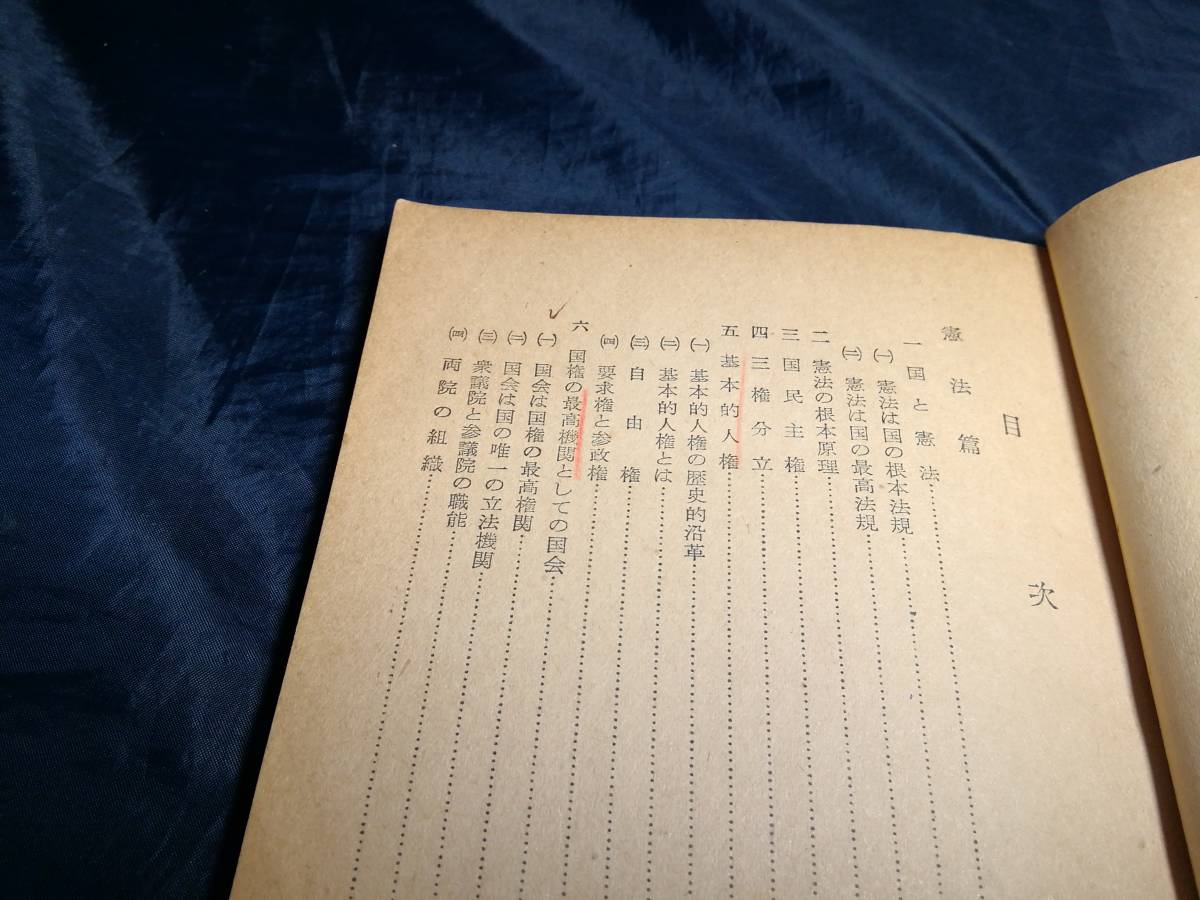 目次
憲法篇
一 国と憲法
㈠ 憲法は国の根本法規
㈡ 憲法は国の最高法規
二 憲法の根本原理
三 国民主権
四 三権分立
五 基本的人権
㈠ 基本的人権の歴史的沿革
㈡ 基本的人権とは
㈢ 自由権
㈣ 要求権と参政権
六 国権の最高機関としての国会
㈠ 国会は国権の最高権関
㈡ 国会は国の唯一の立法機関
㈢ 衆議院と参議院の職能
㈣ 両院の組織